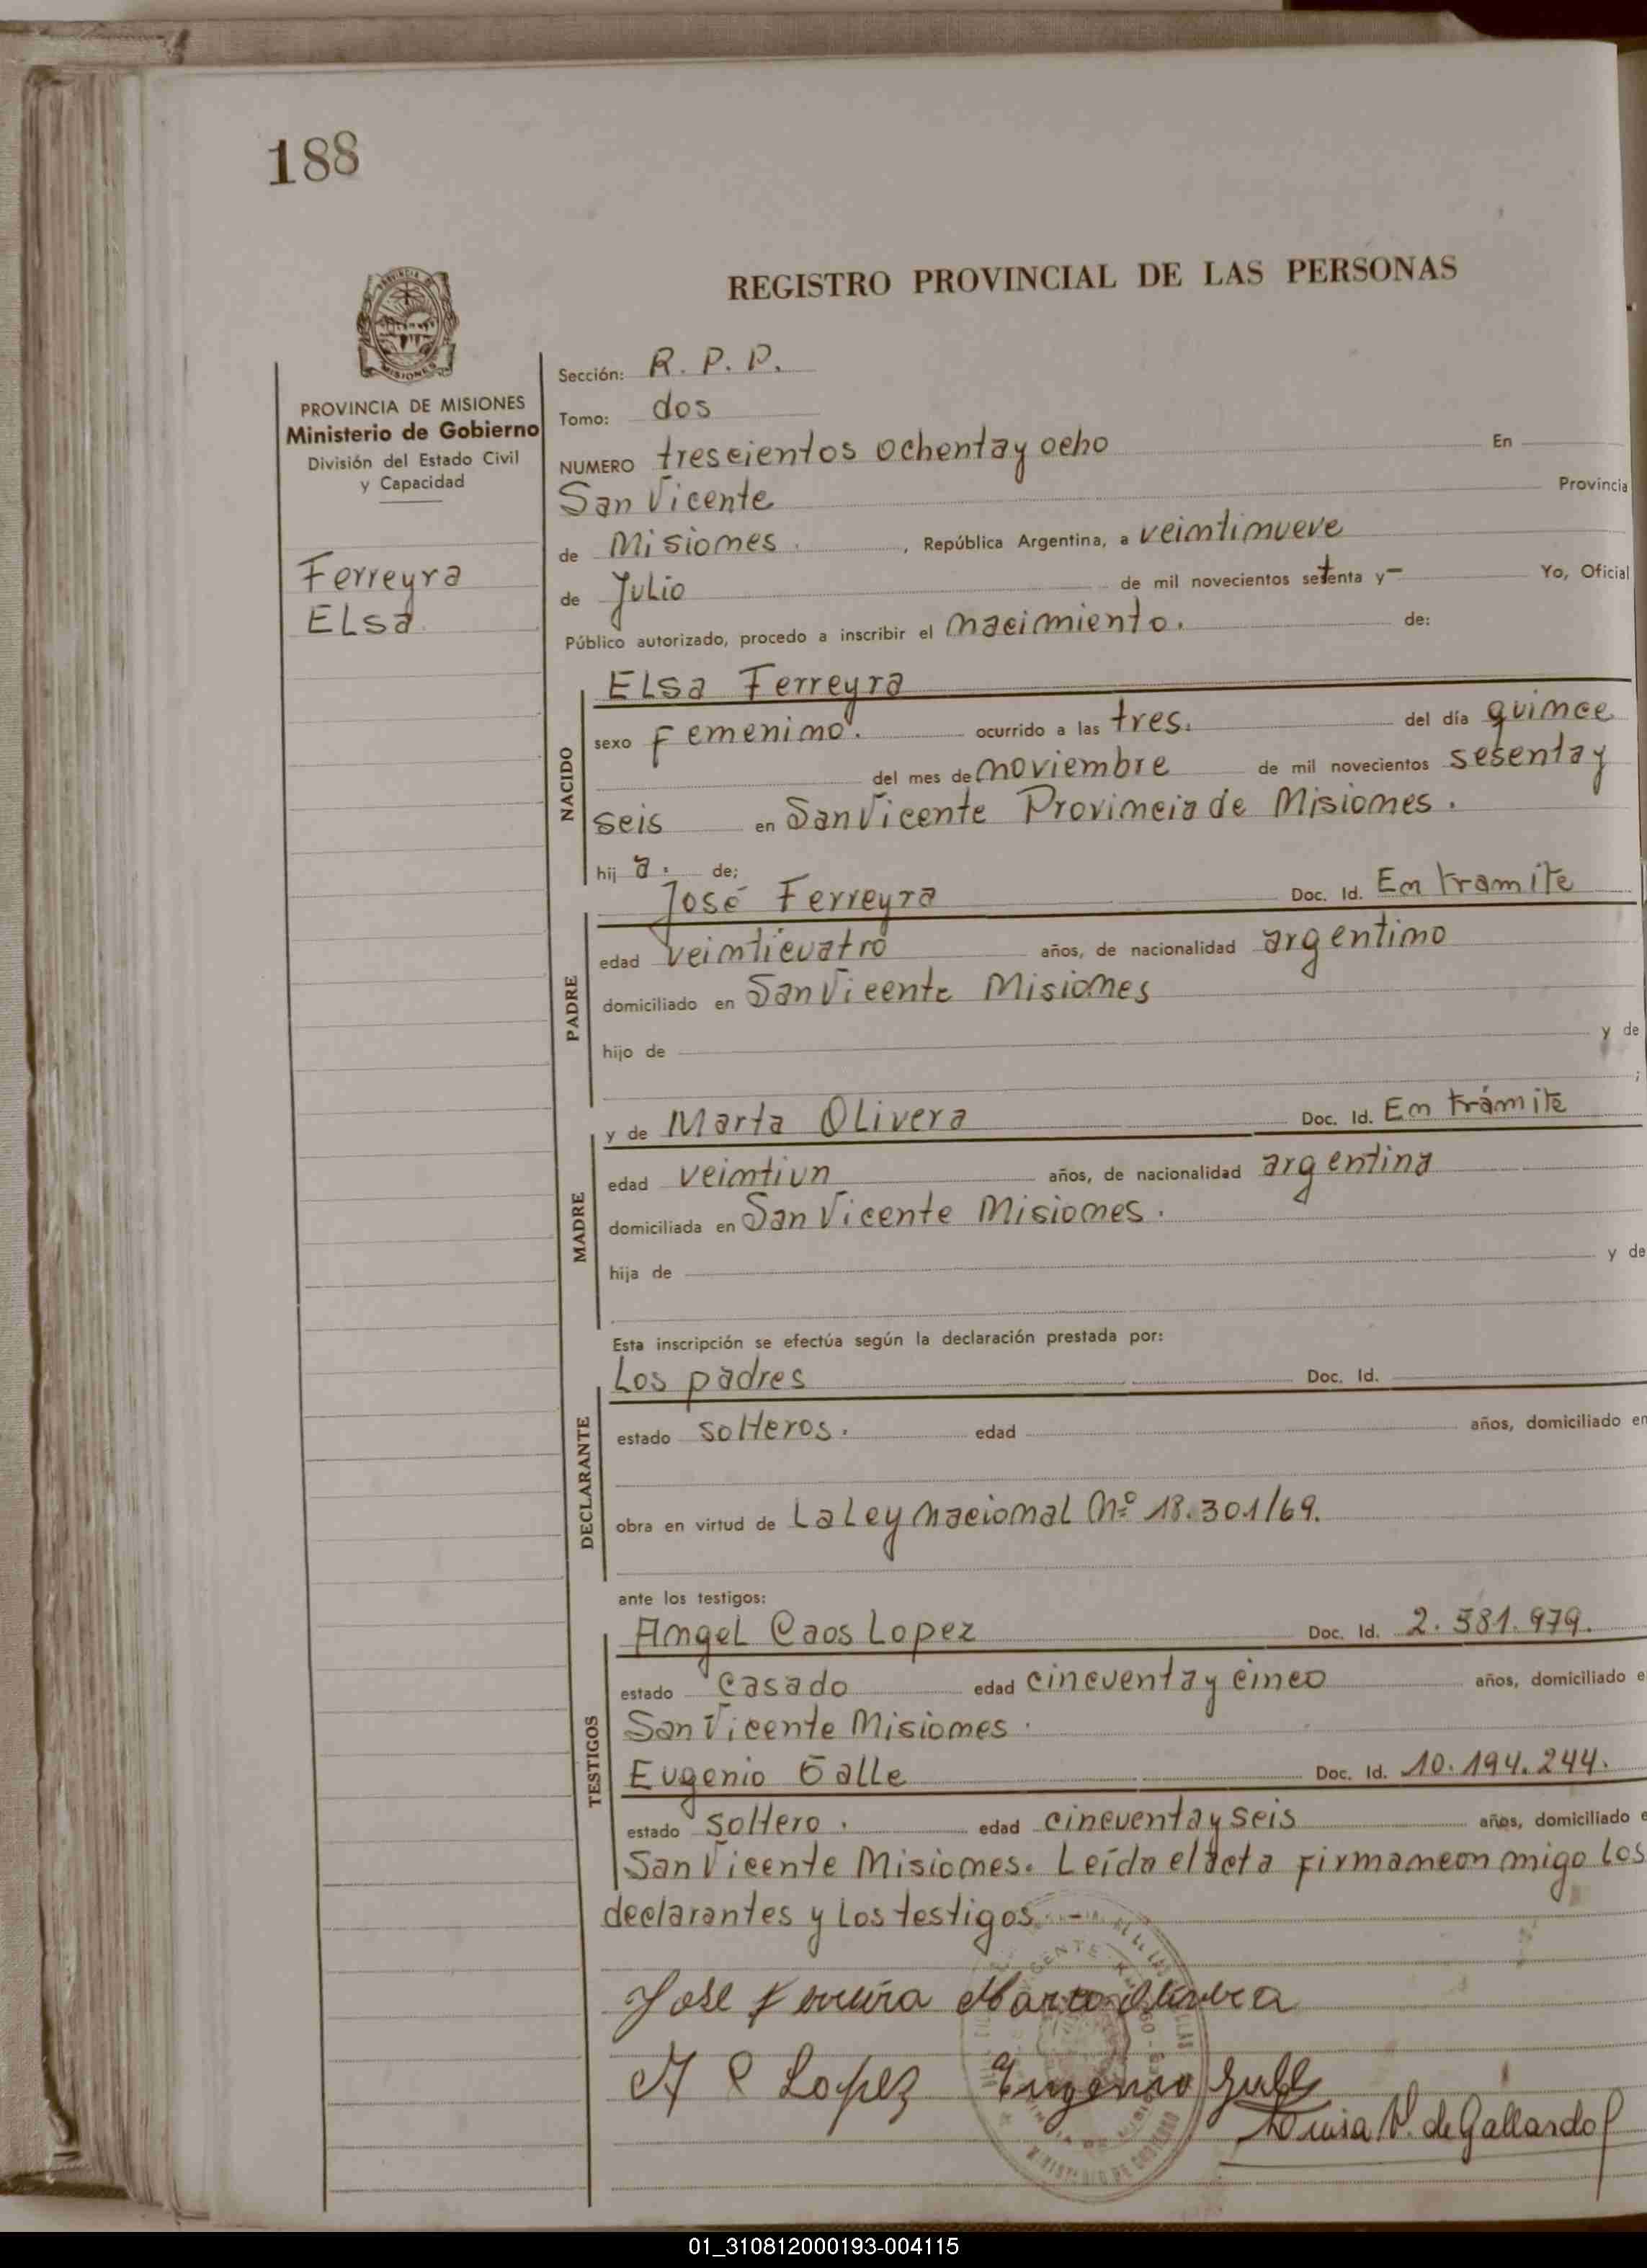 188
REGISTRO PROVINCIAL DE LAS PERSONAS
PROVINCIA DE MISIONES
Ministerio de Gobierno
División del Estado Civil
y Capacidad
Ferreyra
Elsa
Sección: R. P. P.
Tomo: dos
NUMERO trescientos ochenta y ocho En
San Vicente Provincia
de Misiones. , República Argentina, a veintinueve
de Julio de mil novecientos setenta y - Yo, Oficial
Público autorizado, procedo a inscribir el nacimiento. de:
NACIDO
Elsa Ferreyra
sexo Femenino. ocurrido a las tres. del día quince
del mes de noviembre de mil novecientos sesenta y
seis en San Vicente Provincia de Misiones.
hij a. de;
PADRE
José Ferreyra Doc. Id. En tramite
edad veinticuatro años, de nacionalidad argentino
domiciliado en San Vicente Misiones
hijo de y de
;
MADRE
y de Marta Olivera Doc. Id. En trámite
edad veintiun años, de nacionalidad argentina
domiciliada en San Vicente Misiones.
hija de y de
Esta inscripción se efectúa según la declaración prestada por:
DECLARANTE
Los padres Doc. Id.
estado solteros. edad años, domiciliado en
obra en virtud de La Ley Nacional Nº 18.301/69.
ante los testigos:
TESTIGOS
Angel Caos Lopez Doc. Id. 2.581.979.
estado casado edad cincuenta y cinco años, domiciliado e
San Vicente Misiones.
Eugenio Galle Doc. Id. 10.194.244.
estado soltero. edad cincuenta y seis años, domiciliado e
San Vicente Misiones. Leída el acta firman con migo los
declarantes y los testigos. -
José Ferreira Marta Olivera
A C Lopez Eugenio Galle
Luisa V. de Gallardo
MINISTERIO DE GOBIERNO
01_310812000193-004115